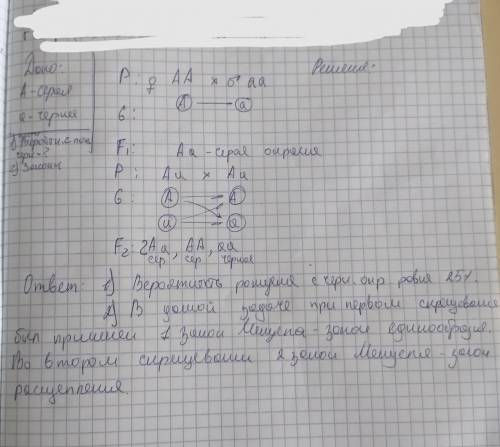 Дано:
Решение:
P: ♀ AA × ♂ aa
A - серая
a - черная
(A) — (a)
G:
F1: Aa - серая окраска
2) Законы
P: Aa × Aa
G: (A) (A)
(a) (a)
F2: 2Aa, AA, aa
сер. сер. черная
Ответ: 1) Вероятность рождения с черн. окр. равна 25%.
2) В данной задаче при первом скрещивании
был применен 1 закон Менделя - закон единообразия.
Во втором скрещивании 2 закон Менделя - закон
расщепления.